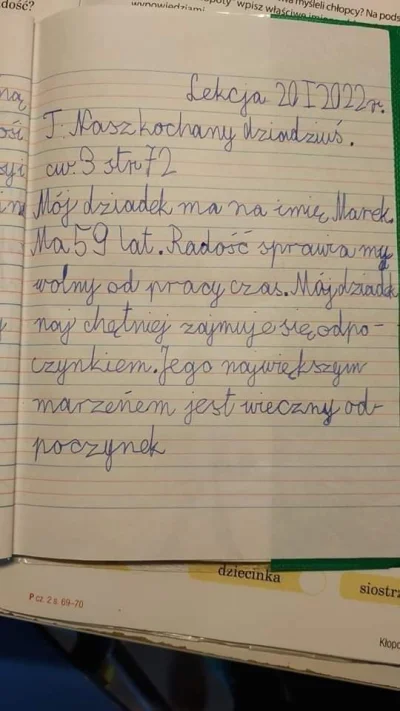 dość?
wypowiedziami
wpisz właściwe
myśleli chłopcy? Na pods
Lekcja 20 I 2022r.
T: Nasz kochany dziadziuś.
ćw. 3 str 72
Mój dziadek ma na imię Marek.
Ma 59 lat. Radość sprawia my
wolny od pracy czas. Mój dziadek
naj chętniej zajmuje się odpo-
czynkiem. Jego największym
marzeńem jest wieczny od-
poczynek
dziecinka
siostrz
P cz. 2 s. 69-70
Kłopo